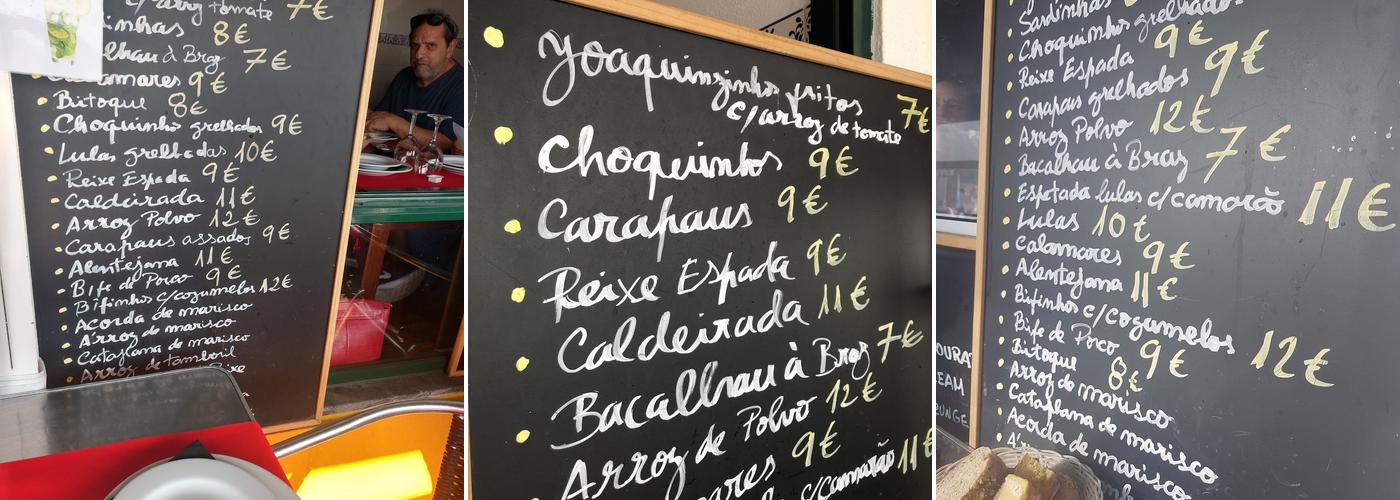 c/arroz tomate 7€
8€
à Braz 7€
Calamares 9€
Bitoque 8€
Choquinhos grelhados 9€
Lulas grelhadas 10€
Peixe Espada 9€
Caldeirada 11€
Arroz Polvo 12€
Carapaus assados 9€
Alentejana 11€
Bife de Porco 9€
Bifinhos c/cogumelos 12€
Açorda de marisco
Arroz de marisco
Cataplana de marisco
Arroz de tamboril
Joaquinzinhos fritos
c/arroz de tomate 7€
Choquinhos 9€
Carapaus 9€
Peixe Espada 9€
Caldeirada 11€
Bacalhau à Braz 7€
Arroz de Polvo 12€
9€
c/camarão 11€
Sardinhas
Choquinhos grelhados
Peixe Espada 9€
Carapaus grelhados 9€
Arroz Polvo 12€
Bacalhau à Braz 7€
Espetada lulas c/camarão 11€
Lulas 10€
Calamares 9€
Alentejana 11€
Bifinhos c/cogumelos 12€
Bife de Porco 9€
Bitoque 8€
Arroz de marisco
Cataplana de marisco
Açorda de marisco